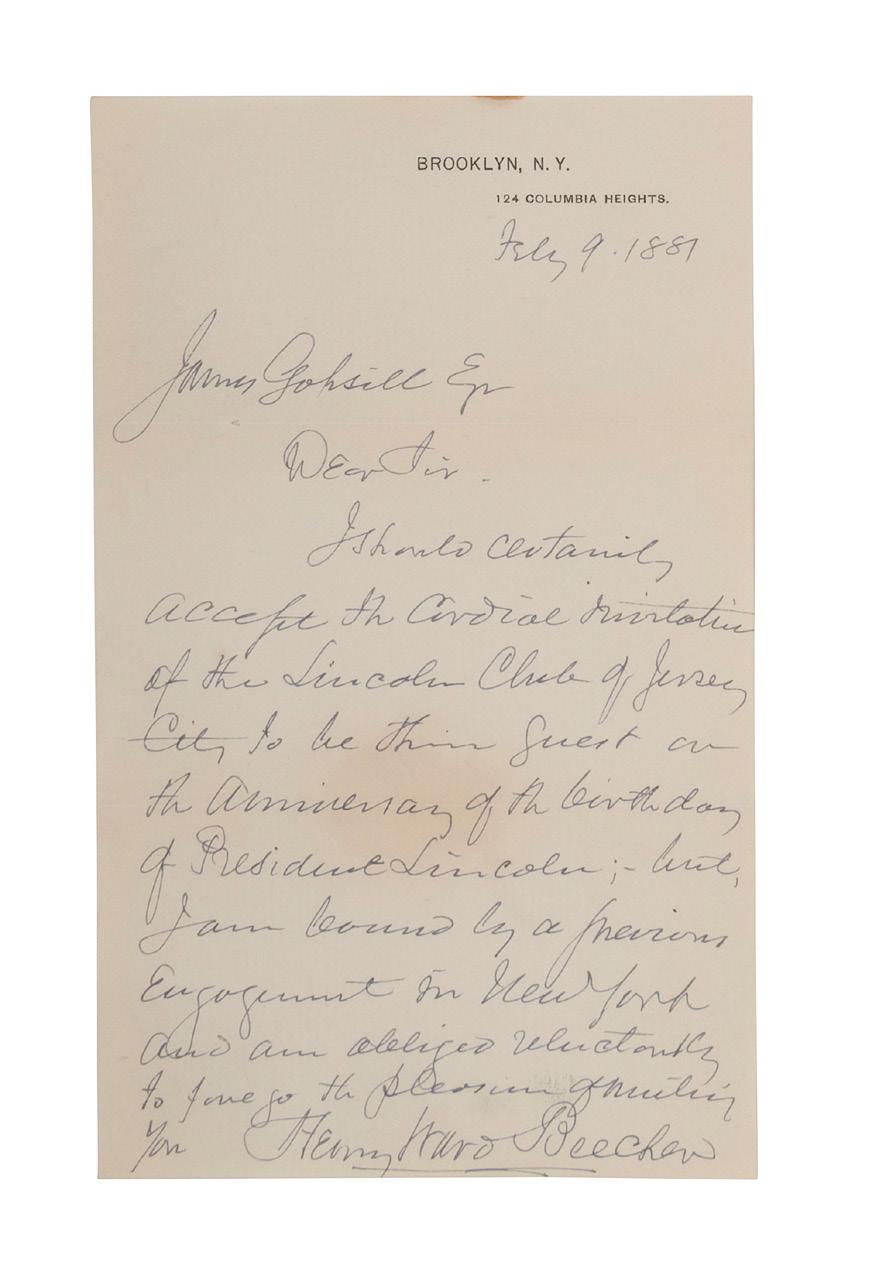 BROOKLYN, N. Y.
124 COLUMBIA HEIGHTS.
Feby 9. 1881
James Gopsill Esq
Dear Sir.
I should certainly
accept the Cordial invitation
of the Lincoln Club of Jersey
City to be their guest on
the Anniversary of the birthday
of President Lincoln ;- but,
I am bound by a previous
Engagement in New York
and am obliged reluctantly
to forego the pleasure of meeting
you Henry Ward Beecher